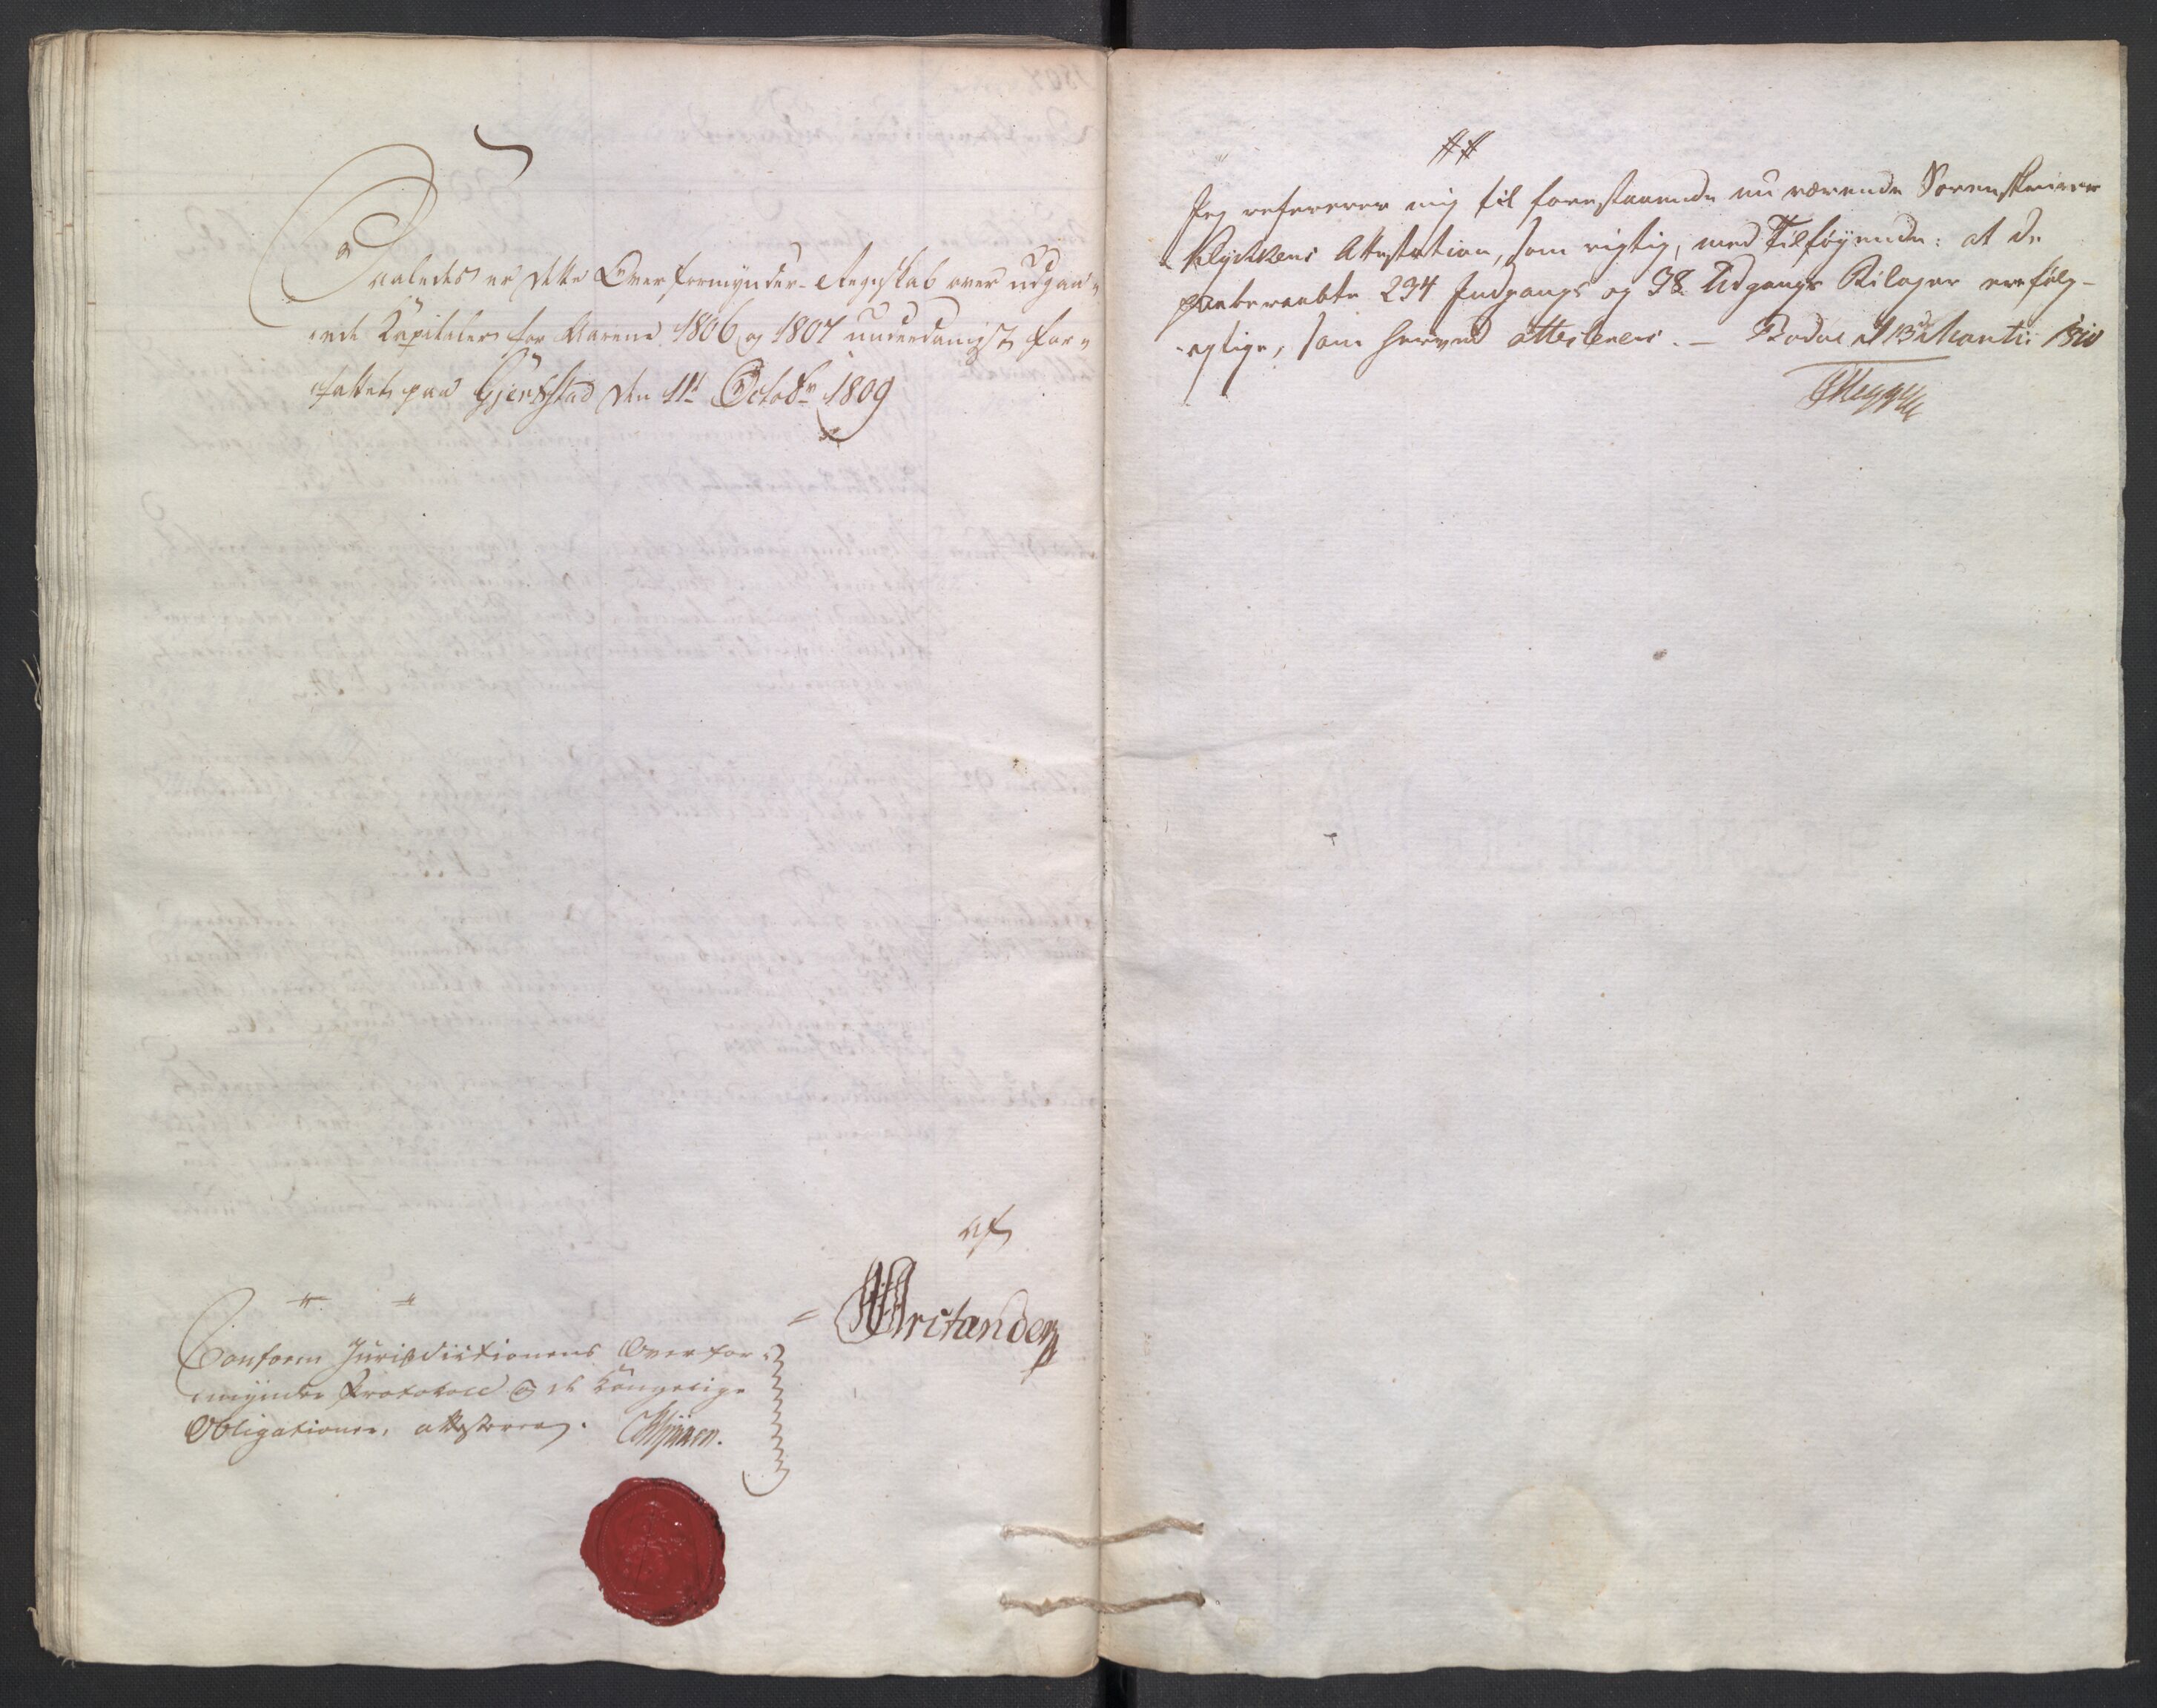 Saaledes er dette Overformynder-Regnskab over udgaa-
ende Kapitaler for Aarene 1806 og 1807 underdanigst for-
fattet paa Gjerkstad den 11t Octobr 1809
af
Arctander
Conform Jurisdictionens Overfor-
mynder Protokoll og de Kongelige
Obligationer, attesteres.
Jeg refererer mig til forestaaende nu værende Sorenskriver
Klykkens Attestation, som rigtig, med Tilføjende: at de
paaberaabte 234 Indgangs og 38 Udgangs Bilager ere følg-
agtige, som herved attesteres. — Bodøe d 13de Martii 1810